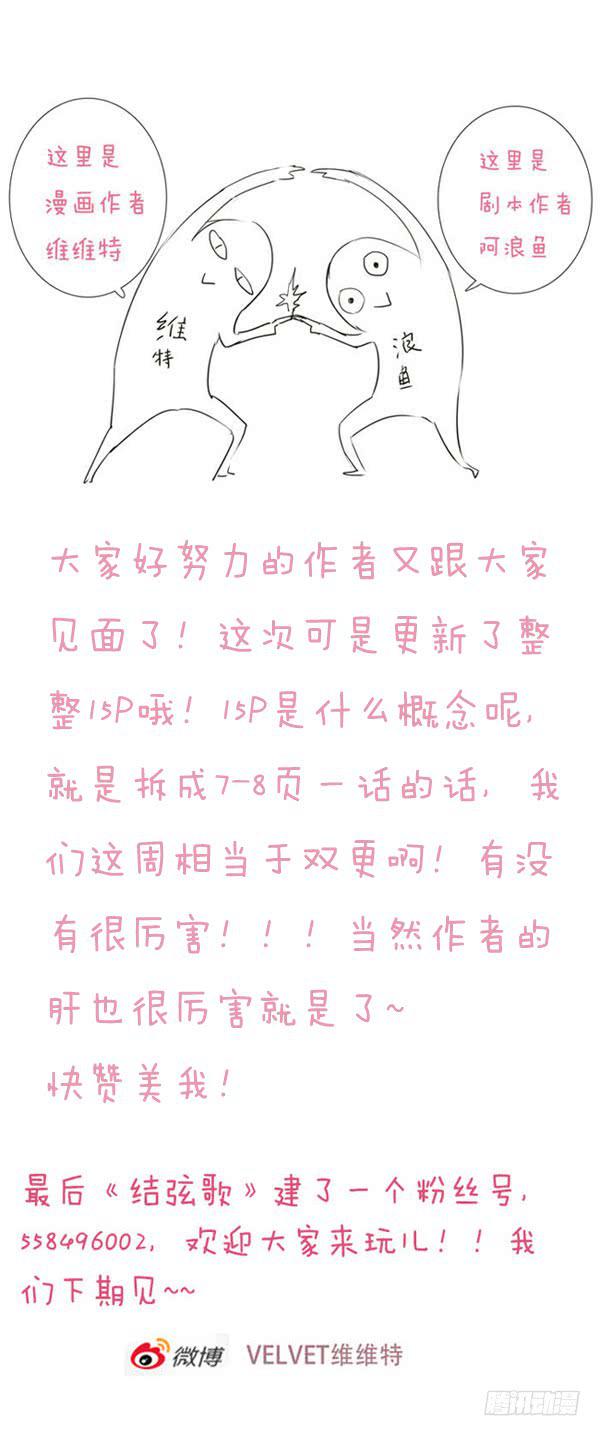 这里是
漫画作者
维维特
这里是
剧本作者
阿浪鱼
維
特
浪
鱼
大家好努力的作者又跟大家
见面了！这次可是更新了整
整15P哦！15P是什么概念呢，
就是拆成7-8页一话的话，我
们这周相当于双更啊！有没
有很厉害！！！当然作者的
肝也很厉害就是了~
快赞美我！
最后《结弦歌》建了一个粉丝号，
558496002，欢迎大家来玩儿！！我
们下期见~~
微博 VELVET维维特
腾讯动漫